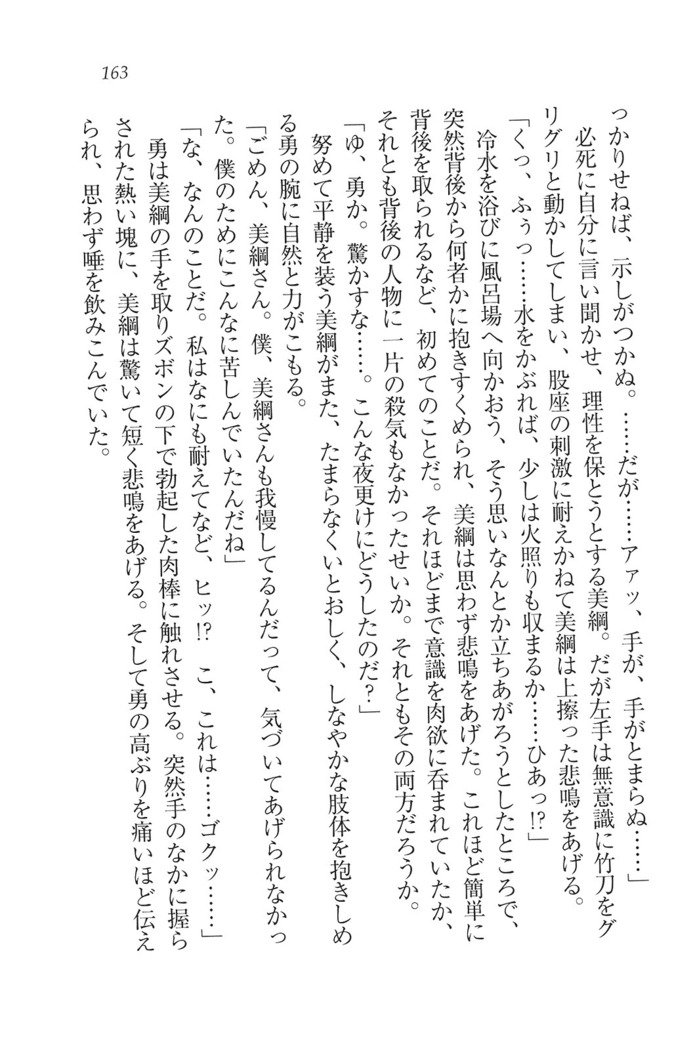 163
っかりせねば、示しがつかぬ。……だが……アァッ、手が、手がとまらぬ……」
　必死に自分に言い聞かせ、理性を保とうとする美綱。だが左手は無意識に竹刀をグ
リグリと動かしてしまい、股座の刺激に耐えかねて美綱は上擦った悲鳴をあげる。
「くっ、ふぅっ……水をかぶれば、少しは火照りも収まるか……ひあっ!?」
　冷水を浴びに風呂場へ向かおう、そう思いなんとか立ちあがろうとしたところで、
突然背後から何者かに抱きすくめられ、美綱は思わず悲鳴をあげた。これほど簡単に
背後を取られるなど、初めてのことだ。それほどまで意識を肉欲に呑まれていたか、
それとも背後の人物に一片の殺気もなかったせいか。それともその両方だろうか。
「ゆ、勇か。驚かすな……。こんな夜更けにどうしたのだ?」
　努めて平静を装う美綱がまた、たまらなくいとおしく、しなやかな肢体を抱きしめ
る勇の腕に自然と力がこもる。
「ごめん、美綱さん。僕、美綱さんも我慢してるんだって、気づいてあげられなかっ
た。僕のためにこんなに苦しんでいたんだね」
「な、なんのことだ。私はなにも耐えてなど、ヒッ!?　こ、これは……ゴクッ……」
　勇は美綱の手を取りズボンの下で勃起した肉棒に触れさせる。突然手のなかに握ら
された熱い塊に、美綱は驚いて短く悲鳴をあげる。そして勇の高ぶりを痛いほど伝え
られ、思わず唾を飲みこんでいた。